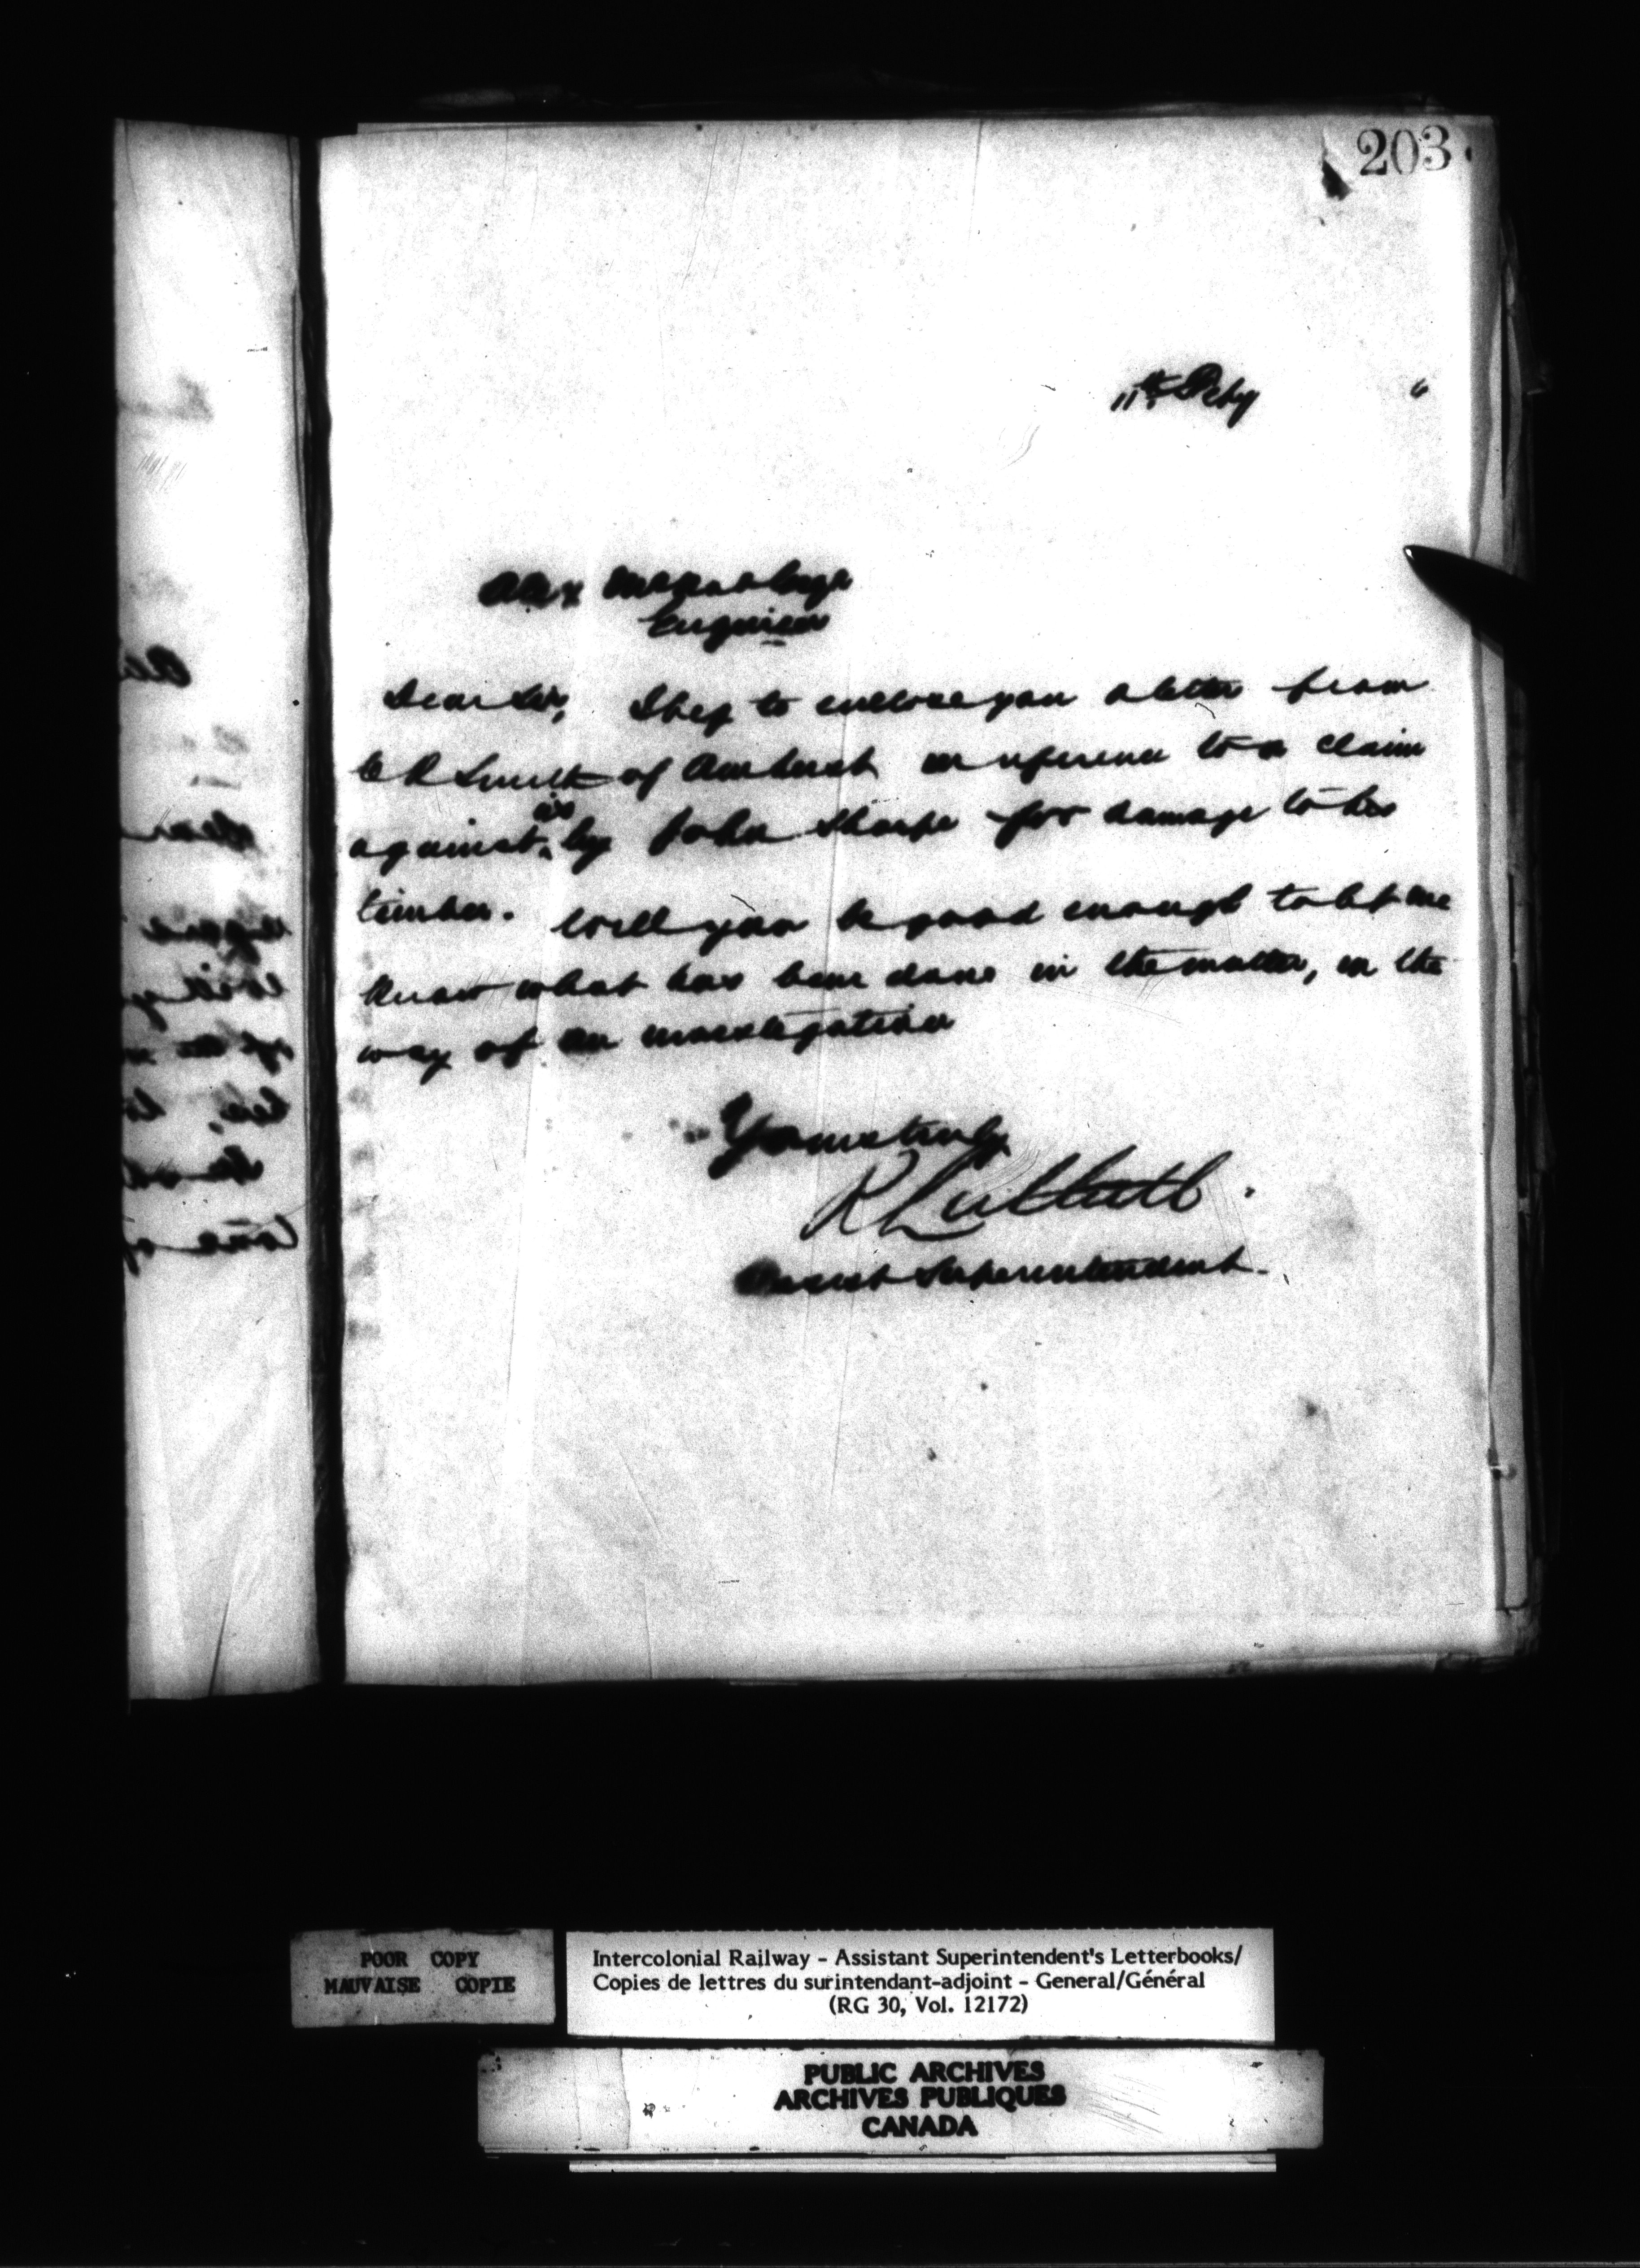 203
11th Feby 6
Alex McNab Esqr
Engineer
Dear Sir, I beg to enclose you a letter from
C R Smith of Amherst in reference to a claim
against us by John Sharpe for damage to his
timber. Will you be good enough to let me
know what has been done in the matter, in the
way of an investigation
Yours truly
R Luttrell
Assist Superintendent.
POOR COPY
MAUVAISE COPIE
Intercolonial Railway - Assistant Superintendent's Letterbooks/
Copies de lettres du surintendant-adjoint - General/Général
(RG 30, Vol. 12172)
PUBLIC ARCHIVES
ARCHIVES PUBLIQUES
CANADA